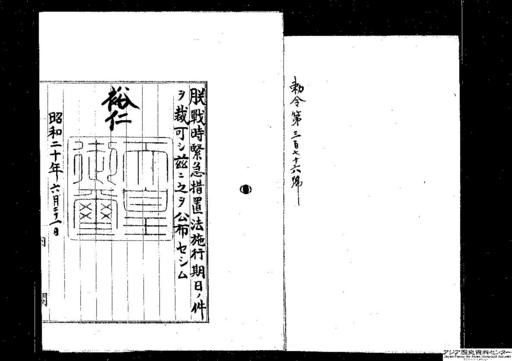 勅令第三百七十六號
朕戰時緊急措置法施行期日ノ件
ヲ裁可シ茲ニ之ヲ公布セシム
裕仁
天皇
御璽
昭和二十年六月二十一日
内閣
アジア歴史資料センター